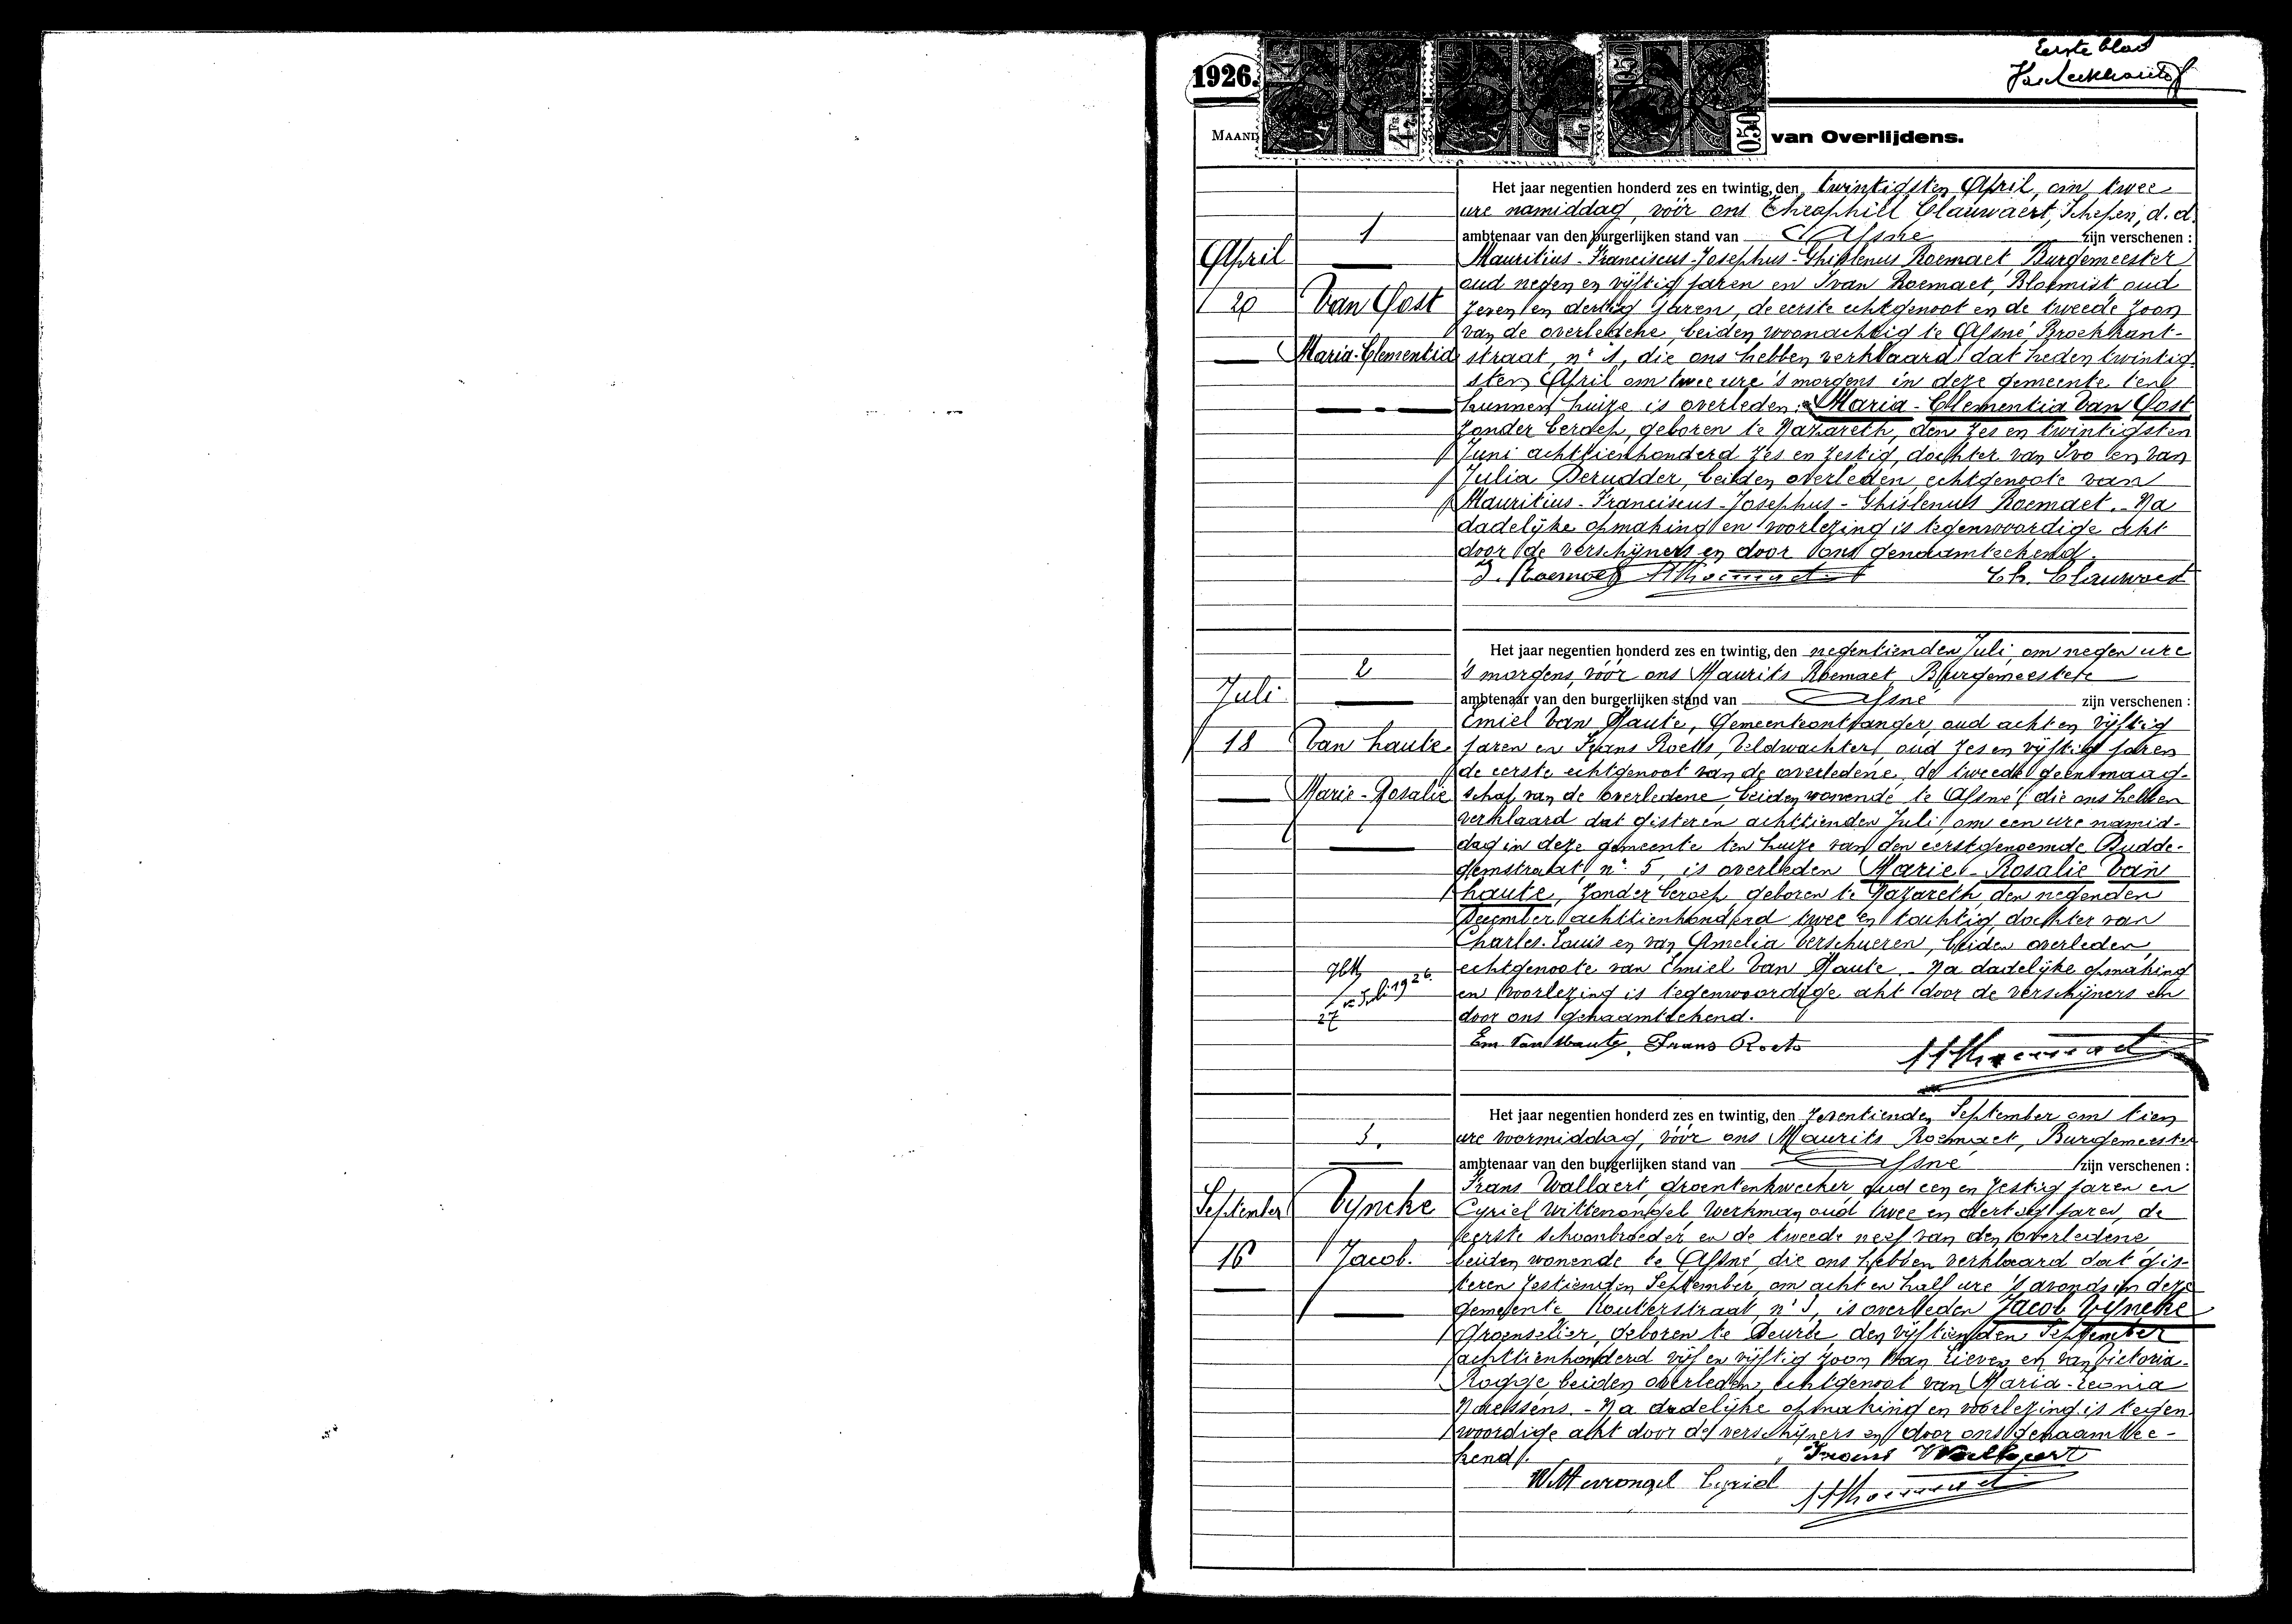 Eerste blad
1926.
MAAND
van Overlijdens.
Het jaar negentien honderd zes en twintig, den twintigsten April, om twee
ure namiddag, vóór ons Theophiel Clauwaert, Schepen, d.d.
1
ambtenaar van den burgerlijken stand van Afsné zijn verschenen :
April
Mauritius-Franciscus-Josephus-Ghislenus Roemaet Burgemeester
oud negen en vijftig jaren en Ivan Roemaet, Bloemist, oud
20
Van Oost
zeven en dertig jaren, de eerste echtgenoot en de tweede zoon
van de overledene, beiden woonachtig te Afsné, Broekkant-
Maria-Clementia
straat, nr 1, die ons hebben verklaard dat heden twintig-
sten April om twee ure 's morgens in deze gemeente ten
hunnen huize is overleden: Maria-Clementia Van Oost
zonder beroep, geboren te Nazareth, den zes en twintigsten
Juni achttienhonderd zes en zestig, dochter van Ivo en van
Julia Derudder, beiden overleden, echtgenoote van
Mauritius-Franciscus-Josephus-Ghislenus Roemaet.- Na
dadelijke opmaking en voorlezing is tegenwoordige akt
door de verschijners en door ons genaamteekend.
I. Roemaet M Roemaet Th. Clauwaert
Het jaar negentien honderd zes en twintig, den negentienden Juli, om negen ure
2
's morgens, vóór ons Maurits Roemaet, Burgemeester
Juli
ambtenaar van den burgerlijken stand van Afsné zijn verschenen :
Emiel Van Haute, Gemeenteontvanger, oud acht en vijftig
18
Van haute
jaren en Frans Roets, Veldwachter, oud zes en vijftig jaren
de eerste echtgenoot van de overledene, de tweede geen maag-
Marie-Rosalie
schap van de overledene, beiden wonende te Afsné, die ons hebben
verklaard dat gisteren achttienden Juli, om een ure namid-
dag in deze gemeente ten huize van den eerstgenoemde Budde-
gemstraat, nr 5, is overleden Marie-Rosalie Van
haute, zonder beroep, geboren te Nazareth, den negenden
December achttienhonderd twee en tachtig, dochter van
Charles-Louis en van Amelia Verschueren, beiden overleden,
echtgenoote van Emiel Van Haute.- Na dadelijke opmaking
Juli 1926.
en voorlezing is tegenwoordige akt door de verschijners en
27
door ons genaamteekend.
Em Van Haute, Frans Roets M Roemaet
Het jaar negentien honderd zes en twintig, den zeventienden September om tien
3.
ure voormiddag, vóór ons Maurits Roemaet, Burgemeester
ambtenaar van den burgerlijken stand van Afsné zijn verschenen :
Frans Wallaert, groentenkweeker oud een en zestig jaren en
September
Vyncke
Cyriel Wittevrongel, Werkman oud twee en dertig jaren, de
eerste schoonbroeder en de tweede neef van den overledene,
16
Jacob.
beiden wonende te Afsné, die ons hebben verklaard dat gis-
teren zestienden September, om acht en half ure 's avonds in deze
gemeente Kouterstraat, nr 3, is overleden Jacob Vyncke
Groenselier, geboren te Deurle, den vijftienden September
achttienhonderd vijf en vijftig zoon van Lieven en van Victoria-
Rogge, beiden overleden, echtgenoot van Maria-Leonia
Naessens.- Na dadelijke opmaking en voorlezing is tegen
woordige akt door de verschijners en door ons genaamtee-
kend.
Frans Wallaert
Wittevrongel Cyriel M Roemaet